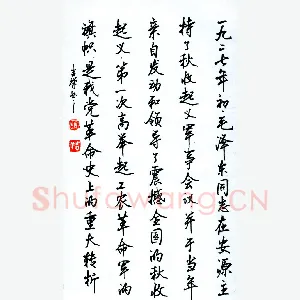 一九二七年初毛泽东同志在安源主
持了秋收起义军事会议并于当年
亲自发动和领导了震撼全国的秋收
起义第一次高举起工农革命军的
旗帜是我党革命史上的重大转折
Shufawang.CN